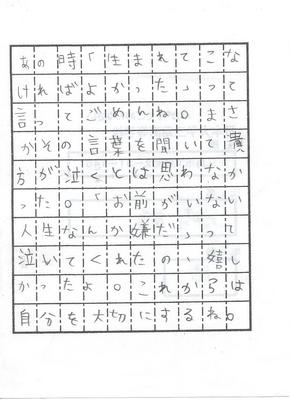 あの時「生まれてこな
ければよかった」って
言ってごめんね。まさ
かその言葉を聞いて貴
方が泣くとは思わなか
った。「お前がいない
人生なんか嫌だ」って
泣いてくれたの、嬉し
かったよ。これからは
自分を大切にするね。